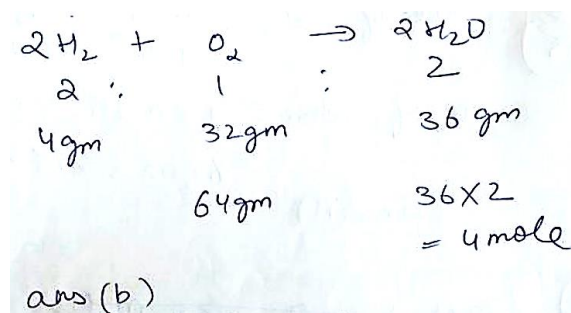 2H₂ + O₂ → 2H₂O
2 : 1 : 2
4gm 32gm 36 gm
64gm 36X2
= 4mole
ans (b)